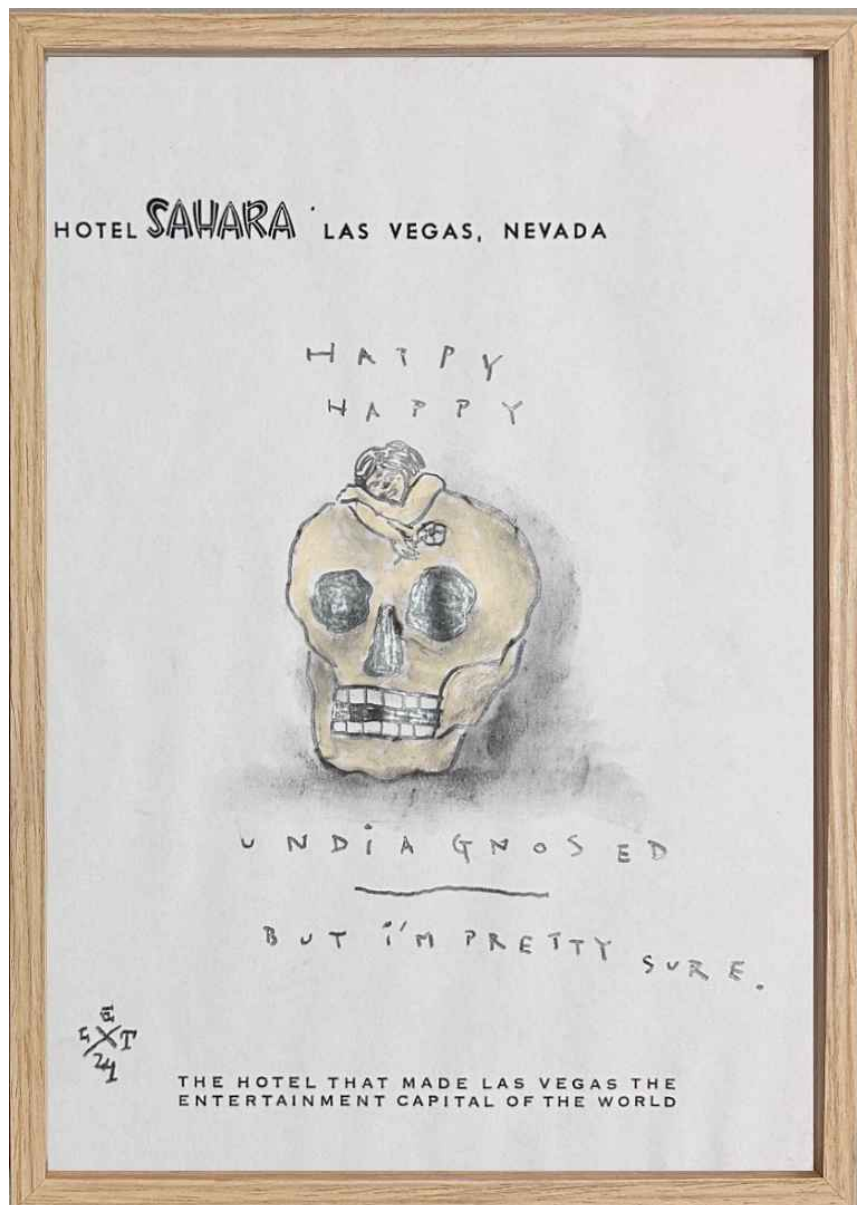 HOTEL SAHARA LAS VEGAS, NEVADA
HAPPY
HAPPY
UNDiAGNOSED
BUT i'M PRETTY SURE.
24
THE HOTEL THAT MADE LAS VEGAS THE
ENTERTAINMENT CAPITAL OF THE WORLD